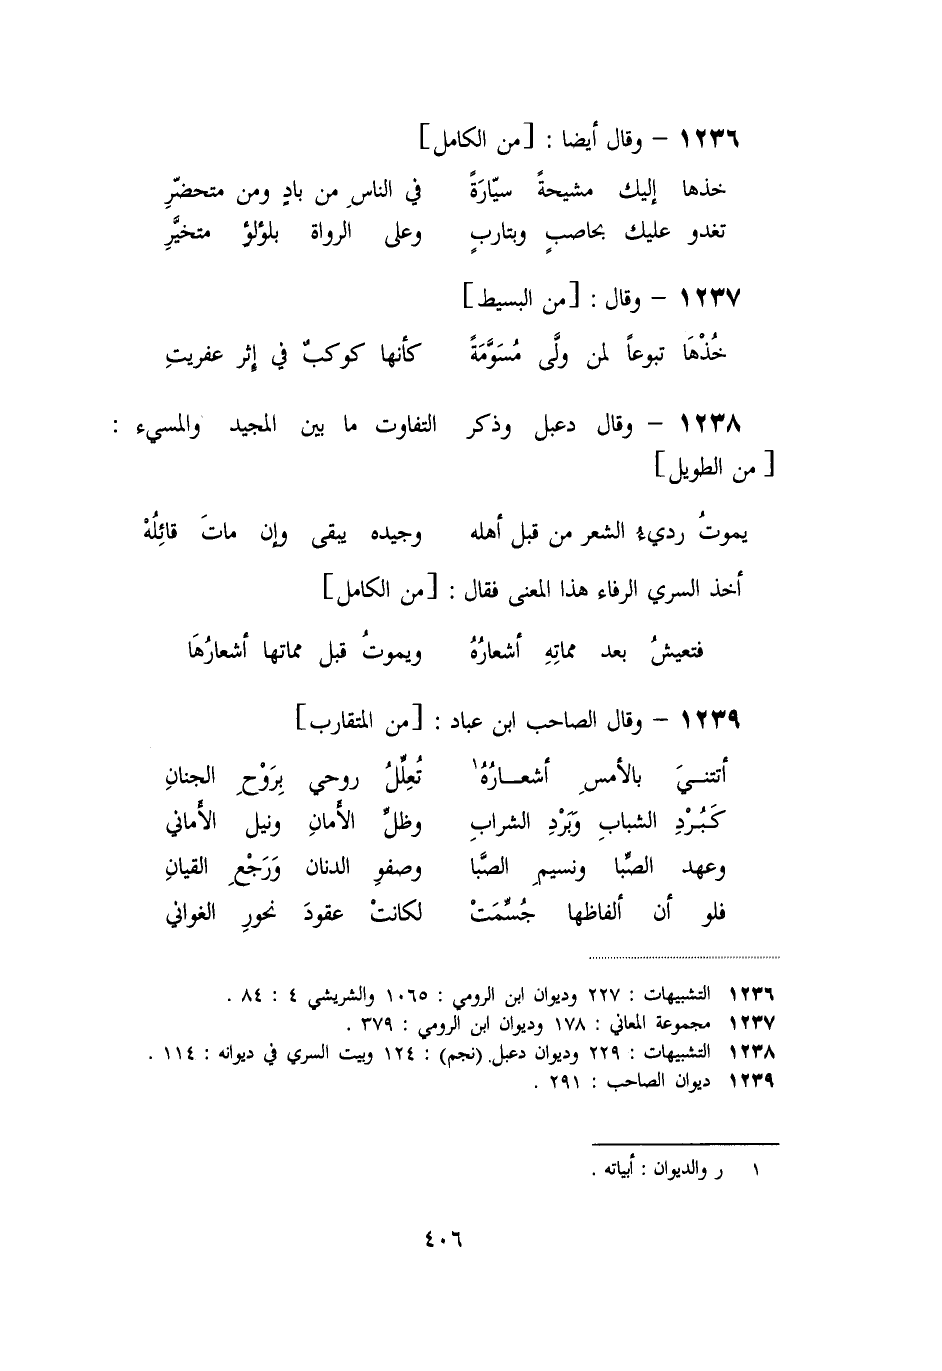 ١٢٣٦ – وقال أيضا : [من الكامل]
خذها إليك مشيحةً سيّارَةً في الناسِ من بادٍ ومن متحضّرِ
تغدو عليك بحاصبٍ وبتاربٍ وعلى الرواة بلؤلؤ متخيَّرِ
١٢٣٧ – وقال : [من البسيط]
خُذْهَا تبوعاً لمن ولَّى مُسَوَّمَةً كأنها كوكبٌ في إثر عفريتِ
١٢٣٨ – وقال دعبل وذكر التفاوت ما بين المجيد والمسيء :
[من الطويل]
يموتُ رديءُ الشعر من قبل أهله وجيده يبقى وإن ماتَ قائِلُهْ
أخذ السري الرفاء هذا المعنى فقال : [من الكامل]
فتعيشُ بعد مماتِهِ أشعارُهُ ويموتُ قبل مماتها أشعارُهَا
١٢٣٩ – وقال الصاحب ابن عباد : [من المتقارب]
أتتنـيَ بالأمسِ أشعـــارُهُ١ تُعِلِّلُ روحي بِرَوْحِ الجنانِ
كَبُـرْدِ الشبابِ وَبَرْدِ الشرابِ وظلِّ الأَمانِ ونيل الأَماني
وعهد الصِّبا ونسيمِ الصَّبا وصفوِ الدنان وَرَجْعِ القيانِ
فلو أن ألفاظها جُسِّمَتْ لكانتْ عقودَ نحورِ الغواني
١٢٣٦ التشبيهات : ٢٢٧ وديوان ابن الرومي : ١٠٦٥ والشريشي ٤ : ٨٤ .
١٢٣٧ مجموعة المعاني : ١٧٨ وديوان ابن الرومي : ٣٧٩ .
١٢٣٨ التشبيهات : ٢٢٩ وديوان دعبل (نجم) : ١٢٤ وبيت السري في ديوانه : ١١٤ .
١٢٣٩ ديوان الصاحب : ٢٩١ .
١ ر والديوان : أبياته .
٤٠٦